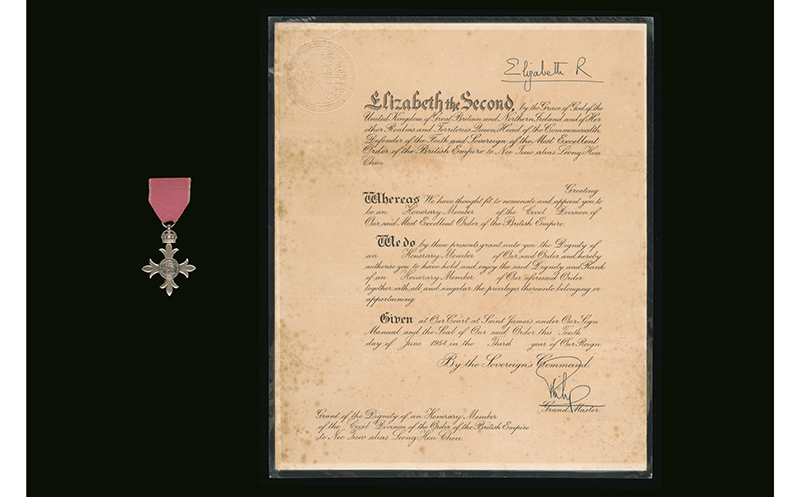 Elizabeth R
Elizabeth the Second, by the Grace of God, of the
United Kingdom of Great Britain and Northern Ireland and of Her
other Realms and Territories Queen, Head of the Commonwealth,
Defender of the Faith and Sovereign of the Most Excellent
Order of the British Empire to Neo Tiew alias Leong Hen
Chew
Greeting
Whereas We have thought fit to nominate and appoint you to
be an Honorary Member of the Civil Division of
Our said Most Excellent Order of the British Empire
We do by these presents grant unto you the Dignity of
an Honorary Member of Our said Order and hereby
authorise you to have hold and enjoy the said Dignity and Rank
of an Honorary Member of Our aforesaid Order
together with all and singular the privileges thereunto belonging or
appertaining.
Given at Our Court at Saint James's under Our Sign
Manual and the Seal of Our said Order this Tenth
day of June 1954 in the Third year of Our Reign.
By the Sovereign's Command.
Philip
Grand Master
Grant of the Dignity of an Honorary Member
of the Civil Division of the Order of the British Empire
to Neo Tiew alias Leong Hen Chew